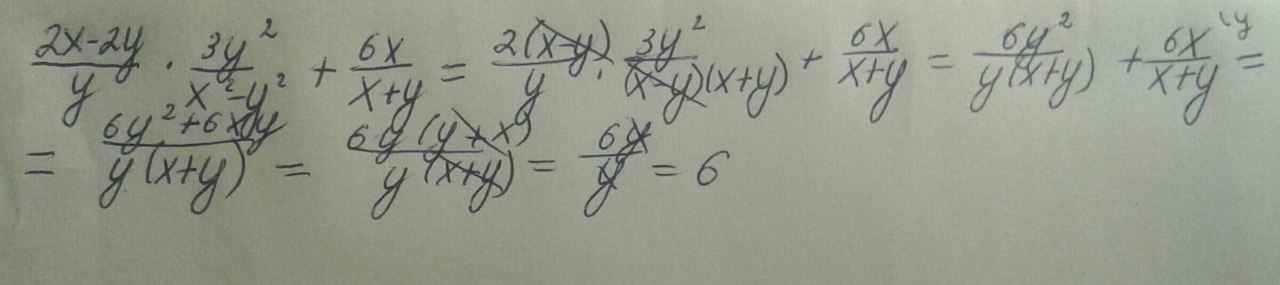 \frac{2x-2y}{y} \cdot \frac{3y^2}{x^2-y^2} + \frac{6x}{x+y} = \frac{2(x-y)}{y} \cdot \frac{3y^2}{(x-y)(x+y)} + \frac{6x}{x+y} = \frac{6y^2}{y(x+y)} + \frac{6x^{\backslash y}}{x+y} =
= \frac{6y^2+6xy}{y(x+y)} = \frac{6y(y+x)}{y(x+y)} = \frac{6y}{y} = 6